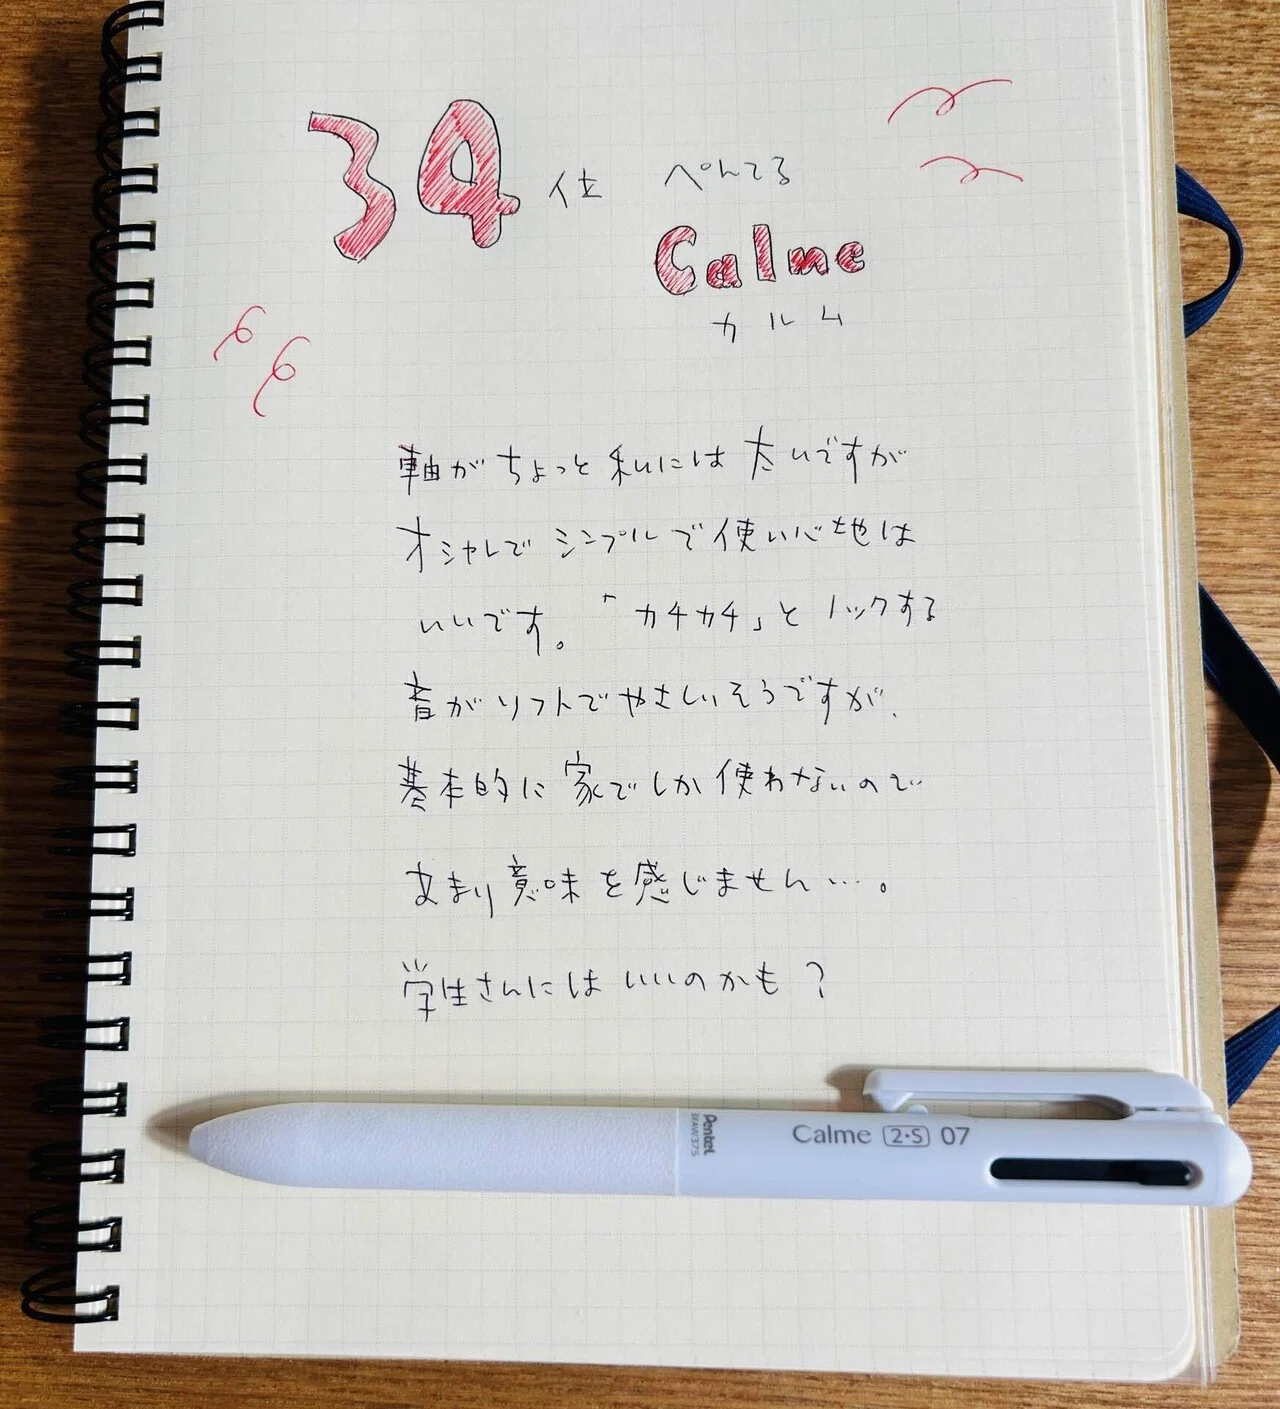 34位 ぺんてる
Calme
カルム
軸がちょっと私には太いですが
オシャレでシンプルで使い心地は
いいです。「カチカチ」とノックする
音がソフトでやさしいそうですが、
基本的に家でしか使わないので
あまり意味を感じません…。
学生さんにはいいのかも?
Pentel
BXAW375
Calme 2・S 07